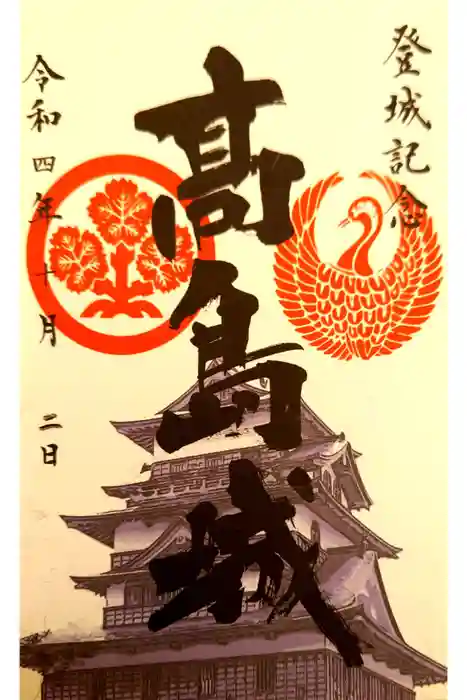 登城記念
髙島城
令和四年十月二日